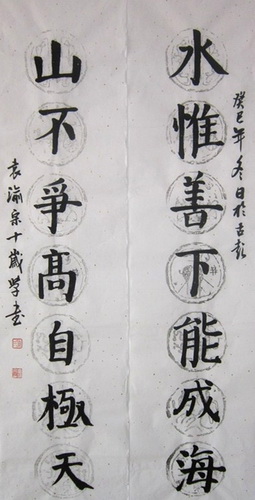 癸巳年冬日於古彭
水惟善下能成海
山不爭高自極天
袁渝宗十歲學書